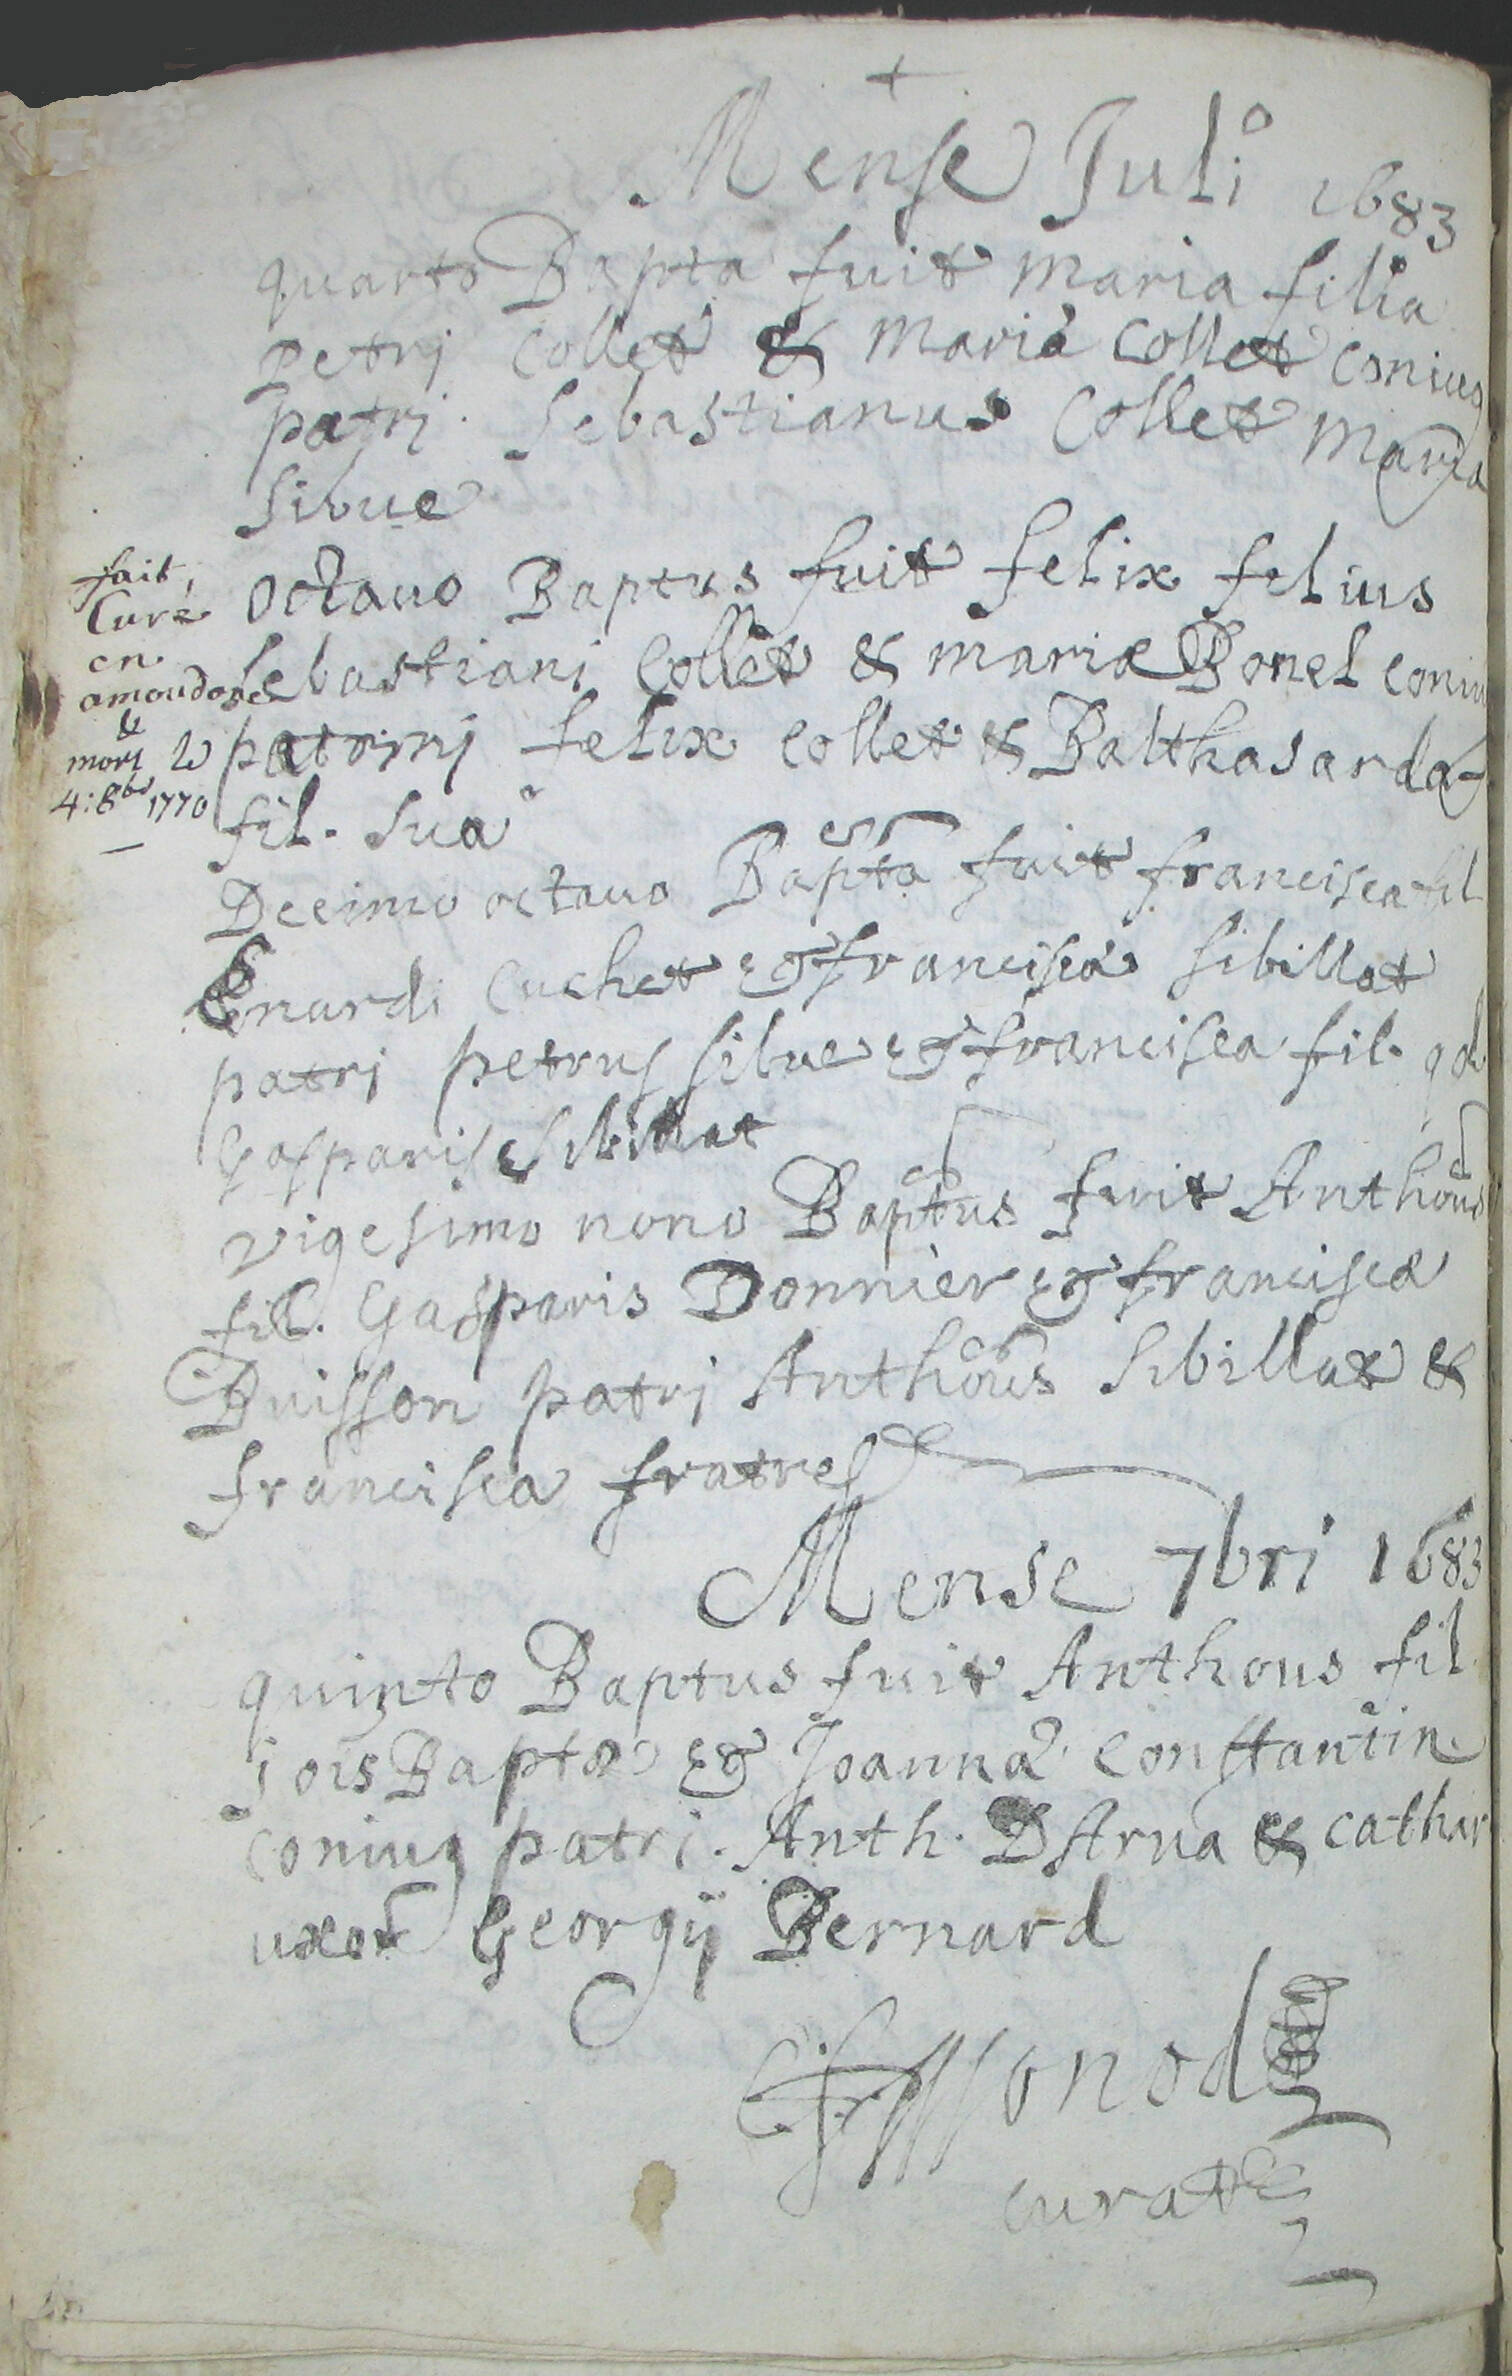 +
Mense Juli° 1683
quarto Bapta fuit maria filia
petrj collet & maria collet coniug
patrj. Sebastianus Collet maria
Silue
octauo Baptus fuit felix felius
Sebastianj Collet & mariæ Bonel coniu
patrinj felix collet & Balthasarda
fil. sua
Decimo octauo Bapta fuit francisca fil
Enardi cuchet & franciscæ sibillat
patrj petrus silue & francisca fil. qd
Gasparis sibillat
vigesimo nono Baptus fuit Anthõus
fil. Gasparis Donnier & franciscæ
Buisson patrj Anthõus sibillat &
francisca fratres
Mense 7bri 1683
quinto Baptus fuit Anthous fil
jois Baptæ & Joannæ Constantin
coniug patrj. Anth. DArua & cathar
uxor Georgij Bernard
Monod
curat
fait
Curé
en
amoudose
&
mort le
4: 8bre 1770